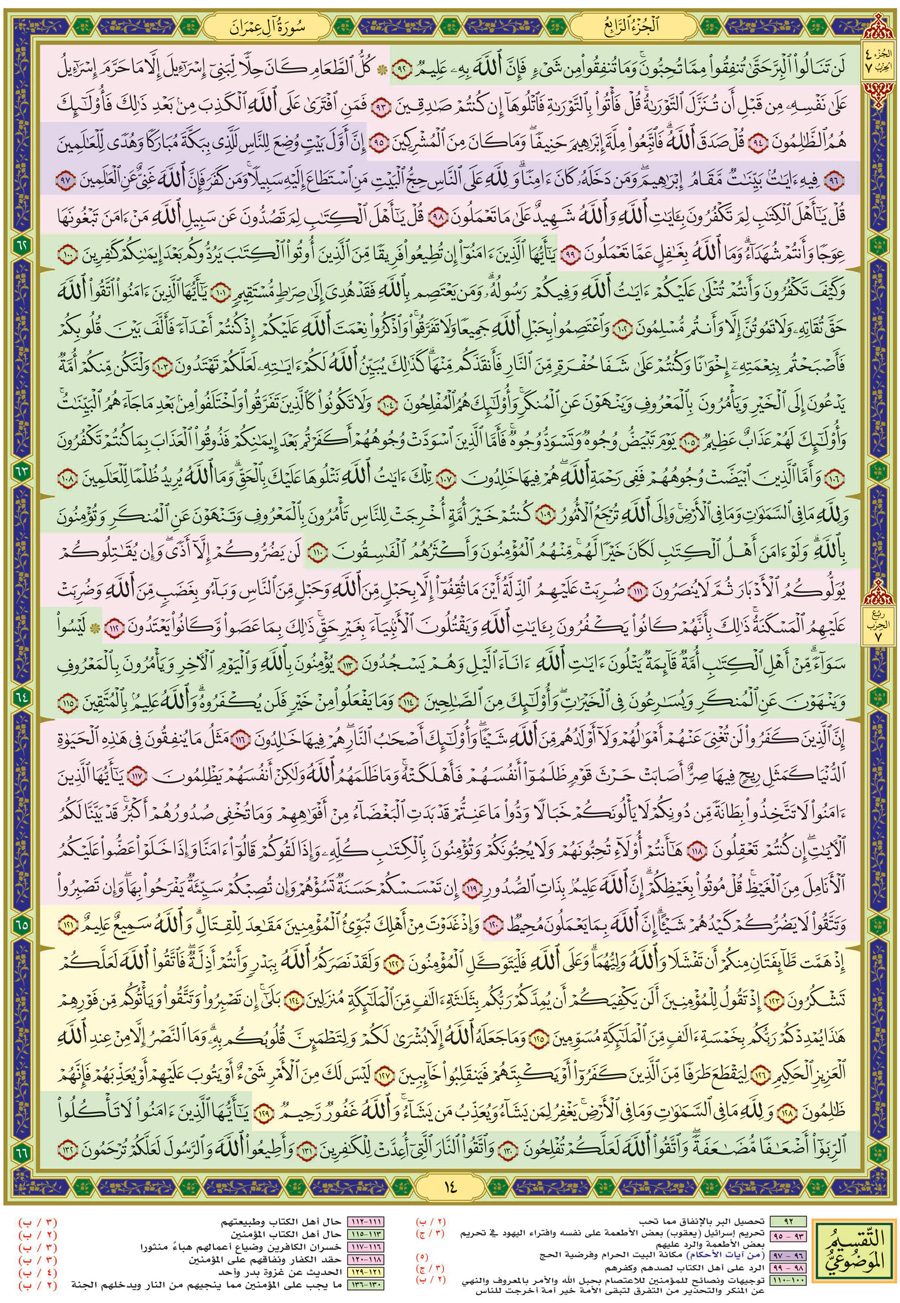 الجُزْءُ الرَّابِعُ
سُورَةُ آلِ عِمْرَان
الجُزء ٤
الحِزب ٧
لَن تَنَالُوا۟ ٱلْبِرَّ حَتَّىٰ تُنفِقُوا۟ مِمَّا تُحِبُّونَ ۚ وَمَا تُنفِقُوا۟ مِن شَىْءٍ فَإِنَّ ٱللَّهَ بِهِۦ عَلِيمٌ ٩٢ ۞ كُلُّ ٱلطَّعَامِ كَانَ حِلًّا لِّبَنِىٓ إِسْرَٰٓءِيلَ إِلَّا مَا حَرَّمَ إِسْرَٰٓءِيلُ
عَلَىٰ نَفْسِهِۦ مِن قَبْلِ أَن تُنَزَّلَ ٱلتَّوْرَىٰةُ ۗ قُلْ فَأْتُوا۟ بِٱلتَّوْرَىٰةِ فَٱتْلُوهَآ إِن كُنتُمْ صَٰدِقِينَ ٩٣ فَمَنِ ٱفْتَرَىٰ عَلَى ٱللَّهِ ٱلْكَذِبَ مِنۢ بَعْدِ ذَٰلِكَ فَأُو۟لَٰٓئِكَ
هُمُ ٱلظَّٰلِمُونَ ٩٤ قُلْ صَدَقَ ٱللَّهُ ۗ فَٱتَّبِعُوا۟ مِلَّةَ إِبْرَٰهِيمَ حَنِيفًا وَمَا كَانَ مِنَ ٱلْمُشْرِكِينَ ٩٥ إِنَّ أَوَّلَ بَيْتٍ وُضِعَ لِلنَّاسِ لَلَّذِى بِبَكَّةَ مُبَارَكًا وَهُدًى لِّلْعَٰلَمِينَ
٩٦ فِيهِ ءَايَٰتٌۢ بَيِّنَٰتٌ مَّقَامُ إِبْرَٰهِيمَ ۖ وَمَن دَخَلَهُۥ كَانَ ءَامِنًا ۗ وَلِلَّهِ عَلَى ٱلنَّاسِ حِجُّ ٱلْبَيْتِ مَنِ ٱسْتَطَاعَ إِلَيْهِ سَبِيلًا ۚ وَمَن كَفَرَ فَإِنَّ ٱللَّهَ غَنِىٌّ عَنِ ٱلْعَٰلَمِينَ ٩٧
قُلْ يَٰٓأَهْلَ ٱلْكِتَٰبِ لِمَ تَكْفُرُونَ بِـَٔايَٰتِ ٱللَّهِ وَٱللَّهُ شَهِيدٌ عَلَىٰ مَا تَعْمَلُونَ ٩٨ قُلْ يَٰٓأَهْلَ ٱلْكِتَٰبِ لِمَ تَصُدُّونَ عَن سَبِيلِ ٱللَّهِ مَنْ ءَامَنَ تَبْغُونَهَا
عِوَجًا وَأَنتُمْ شُهَدَآءُ ۗ وَمَا ٱللَّهُ بِغَٰفِلٍ عَمَّا تَعْمَلُونَ ٩٩ يَٰٓأَيُّهَا ٱلَّذِينَ ءَامَنُوٓا۟ إِن تُطِيعُوا۟ فَرِيقًا مِّنَ ٱلَّذِينَ أُوتُوا۟ ٱلْكِتَٰبَ يَرُدُّوكُم بَعْدَ إِيمَٰنِكُمْ كَٰفِرِينَ ١٠٠
٦٢
وَكَيْفَ تَكْفُرُونَ وَأَنتُمْ تُتْلَىٰ عَلَيْكُمْ ءَايَٰتُ ٱللَّهِ وَفِيكُمْ رَسُولُهُۥ ۗ وَمَن يَعْتَصِم بِٱللَّهِ فَقَدْ هُدِىَ إِلَىٰ صِرَٰطٍ مُّسْتَقِيمٍ ١٠١ يَٰٓأَيُّهَا ٱلَّذِينَ ءَامَنُوا۟ ٱتَّقُوا۟ ٱللَّهَ
حَقَّ تُقَاتِهِۦ وَلَا تَمُوتُنَّ إِلَّا وَأَنتُم مُّسْلِمُونَ ١٠٢ وَٱعْتَصِمُوا۟ بِحَبْلِ ٱللَّهِ جَمِيعًا وَلَا تَفَرَّقُوا۟ ۚ وَٱذْكُرُوا۟ نِعْمَتَ ٱللَّهِ عَلَيْكُمْ إِذْ كُنتُمْ أَعْدَآءً فَأَلَّفَ بَيْنَ قُلُوبِكُمْ
فَأَصْبَحْتُم بِنِعْمَتِهِۦٓ إِخْوَٰنًا وَكُنتُمْ عَلَىٰ شَفَا حُفْرَةٍ مِّنَ ٱلنَّارِ فَأَنقَذَكُم مِّنْهَا ۗ كَذَٰلِكَ يُبَيِّنُ ٱللَّهُ لَكُمْ ءَايَٰتِهِۦ لَعَلَّكُمْ تَهْتَدُونَ ١٠٣ وَلْتَكُن مِّنكُمْ أُمَّةٌ
يَدْعُونَ إِلَى ٱلْخَيْرِ وَيَأْمُرُونَ بِٱلْمَعْرُوفِ وَيَنْهَوْنَ عَنِ ٱلْمُنكَرِ ۚ وَأُو۟لَٰٓئِكَ هُمُ ٱلْمُفْلِحُونَ ١٠٤ وَلَا تَكُونُوا۟ كَٱلَّذِينَ تَفَرَّقُوا۟ وَٱخْتَلَفُوا۟ مِنۢ بَعْدِ مَا جَآءَهُمُ ٱلْبَيِّنَٰتُ ۚ
وَأُو۟لَٰٓئِكَ لَهُمْ عَذَابٌ عَظِيمٌ ١٠٥ يَوْمَ تَبْيَضُّ وُجُوهٌ وَتَسْوَدُّ وُجُوهٌ ۚ فَأَمَّا ٱلَّذِينَ ٱسْوَدَّتْ وُجُوهُهُمْ أَكَفَرْتُم بَعْدَ إِيمَٰنِكُمْ فَذُوقُوا۟ ٱلْعَذَابَ بِمَا كُنتُمْ تَكْفُرُونَ
١٠٦ وَأَمَّا ٱلَّذِينَ ٱبْيَضَّتْ وُجُوهُهُمْ فَفِى رَحْمَةِ ٱللَّهِ هُمْ فِيهَا خَٰلِدُونَ ١٠٧ تِلْكَ ءَايَٰتُ ٱللَّهِ نَتْلُوهَا عَلَيْكَ بِٱلْحَقِّ ۗ وَمَا ٱللَّهُ يُرِيدُ ظُلْمًا لِّلْعَٰلَمِينَ ١٠٨
٦٣
وَلِلَّهِ مَا فِى ٱلسَّمَٰوَٰتِ وَمَا فِى ٱلْأَرْضِ ۚ وَإِلَى ٱللَّهِ تُرْجَعُ ٱلْأُمُورُ ١٠٩ كُنتُمْ خَيْرَ أُمَّةٍ أُخْرِجَتْ لِلنَّاسِ تَأْمُرُونَ بِٱلْمَعْرُوفِ وَتَنْهَوْنَ عَنِ ٱلْمُنكَرِ وَتُؤْمِنُونَ
بِٱللَّهِ ۗ وَلَوْ ءَامَنَ أَهْلُ ٱلْكِتَٰبِ لَكَانَ خَيْرًا لَّهُم ۚ مِّنْهُمُ ٱلْمُؤْمِنُونَ وَأَكْثَرُهُمُ ٱلْفَٰسِقُونَ ١١٠ لَن يَضُرُّوكُمْ إِلَّآ أَذًى ۖ وَإِن يُقَٰتِلُوكُمْ
يُوَلُّوكُمُ ٱلْأَدْبَارَ ثُمَّ لَا يُنصَرُونَ ١١١ ضُرِبَتْ عَلَيْهِمُ ٱلذِّلَّةُ أَيْنَ مَا ثُقِفُوٓا۟ إِلَّا بِحَبْلٍ مِّنَ ٱللَّهِ وَحَبْلٍ مِّنَ ٱلنَّاسِ وَبَآءُو بِغَضَبٍ مِّنَ ٱللَّهِ وَضُرِبَتْ
عَلَيْهِمُ ٱلْمَسْكَنَةُ ۚ ذَٰلِكَ بِأَنَّهُمْ كَانُوا۟ يَكْفُرُونَ بِـَٔايَٰتِ ٱللَّهِ وَيَقْتُلُونَ ٱلْأَنۢبِيَآءَ بِغَيْرِ حَقٍّ ۚ ذَٰلِكَ بِمَا عَصَوا۟ وَّكَانُوا۟ يَعْتَدُونَ ١١٢ ۞ لَيْسُوا۟
رُبع
الحِزب
٧
سَوَآءً ۗ مِّنْ أَهْلِ ٱلْكِتَٰبِ أُمَّةٌ قَآئِمَةٌ يَتْلُونَ ءَايَٰتِ ٱللَّهِ ءَانَآءَ ٱلَّيْلِ وَهُمْ يَسْجُدُونَ ١١٣ يُؤْمِنُونَ بِٱللَّهِ وَٱلْيَوْمِ ٱلْءَاخِرِ وَيَأْمُرُونَ بِٱلْمَعْرُوفِ
وَيَنْهَوْنَ عَنِ ٱلْمُنكَرِ وَيُسَٰرِعُونَ فِى ٱلْخَيْرَٰتِ وَأُو۟لَٰٓئِكَ مِنَ ٱلصَّٰلِحِينَ ١١٤ وَمَا يَفْعَلُوا۟ مِنْ خَيْرٍ فَلَن يُكْفَرُوهُ ۗ وَٱللَّهُ عَلِيمٌۢ بِٱلْمُتَّقِينَ ١١٥
٦٤
إِنَّ ٱلَّذِينَ كَفَرُوا۟ لَن تُغْنِىَ عَنْهُمْ أَمْوَٰلُهُمْ وَلَآ أَوْلَٰدُهُم مِّنَ ٱللَّهِ شَيْـًٔا ۖ وَأُو۟لَٰٓئِكَ أَصْحَٰبُ ٱلنَّارِ ۚ هُمْ فِيهَا خَٰلِدُونَ ١١٦ مَثَلُ مَا يُنفِقُونَ فِى هَٰذِهِ ٱلْحَيَوٰةِ
ٱلدُّنْيَا كَمَثَلِ رِيحٍ فِيهَا صِرٌّ أَصَابَتْ حَرْثَ قَوْمٍ ظَلَمُوٓا۟ أَنفُسَهُمْ فَأَهْلَكَتْهُ ۚ وَمَا ظَلَمَهُمُ ٱللَّهُ وَلَٰكِنْ أَنفُسَهُمْ يَظْلِمُونَ ١١٧ يَٰٓأَيُّهَا ٱلَّذِينَ
ءَامَنُوا۟ لَا تَتَّخِذُوا۟ بِطَانَةً مِّن دُونِكُمْ لَا يَأْلُونَكُمْ خَبَالًا وَدُّوا۟ مَا عَنِتُّمْ قَدْ بَدَتِ ٱلْبَغْضَآءُ مِنْ أَفْوَٰهِهِمْ وَمَا تُخْفِى صُدُورُهُمْ أَكْبَرُ ۚ قَدْ بَيَّنَّا لَكُمُ
ٱلْءَايَٰتِ ۖ إِن كُنتُمْ تَعْقِلُونَ ١١٨ هَٰٓأَنتُمْ أُو۟لَآءِ تُحِبُّونَهُمْ وَلَا يُحِبُّونَكُمْ وَتُؤْمِنُونَ بِٱلْكِتَٰبِ كُلِّهِۦ وَإِذَا لَقُوكُمْ قَالُوٓا۟ ءَامَنَّا وَإِذَا خَلَوْا۟ عَضُّوا۟ عَلَيْكُمُ
ٱلْأَنَامِلَ مِنَ ٱلْغَيْظِ ۚ قُلْ مُوتُوا۟ بِغَيْظِكُمْ ۗ إِنَّ ٱللَّهَ عَلِيمٌۢ بِذَاتِ ٱلصُّدُورِ ١١٩ إِن تَمْسَسْكُمْ حَسَنَةٌ تَسُؤْهُمْ وَإِن تُصِبْكُمْ سَيِّئَةٌ يَفْرَحُوا۟ بِهَا ۖ وَإِن تَصْبِرُوا۟
وَتَتَّقُوا۟ لَا يَضُرُّكُمْ كَيْدُهُمْ شَيْـًٔا ۗ إِنَّ ٱللَّهَ بِمَا يَعْمَلُونَ مُحِيطٌ ١٢٠ وَإِذْ غَدَوْتَ مِنْ أَهْلِكَ تُبَوِّئُ ٱلْمُؤْمِنِينَ مَقَٰعِدَ لِلْقِتَالِ ۗ وَٱللَّهُ سَمِيعٌ عَلِيمٌ ١٢١
٦٥
إِذْ هَمَّت طَّآئِفَتَانِ مِنكُمْ أَن تَفْشَلَا وَٱللَّهُ وَلِيُّهُمَا ۗ وَعَلَى ٱللَّهِ فَلْيَتَوَكَّلِ ٱلْمُؤْمِنُونَ ١٢٢ وَلَقَدْ نَصَرَكُمُ ٱللَّهُ بِبَدْرٍ وَأَنتُمْ أَذِلَّةٌ ۖ فَٱتَّقُوا۟ ٱللَّهَ لَعَلَّكُمْ
تَشْكُرُونَ ١٢٣ إِذْ تَقُولُ لِلْمُؤْمِنِينَ أَلَن يَكْفِيَكُمْ أَن يُمِدَّكُمْ رَبُّكُم بِثَلَٰثَةِ ءَالَٰفٍ مِّنَ ٱلْمَلَٰٓئِكَةِ مُنزَلِينَ ١٢٤ بَلَىٰٓ ۚ إِن تَصْبِرُوا۟ وَتَتَّقُوا۟ وَيَأْتُوكُم مِّن فَوْرِهِمْ
هَٰذَا يُمْدِدْكُمْ رَبُّكُم بِخَمْسَةِ ءَالَٰفٍ مِّنَ ٱلْمَلَٰٓئِكَةِ مُسَوِّمِينَ ١٢٥ وَمَا جَعَلَهُ ٱللَّهُ إِلَّا بُشْرَىٰ لَكُمْ وَلِتَطْمَئِنَّ قُلُوبُكُم بِهِۦ ۗ وَمَا ٱلنَّصْرُ إِلَّا مِنْ عِندِ ٱللَّهِ
ٱلْعَزِيزِ ٱلْحَكِيمِ ١٢٦ لِيَقْطَعَ طَرَفًا مِّنَ ٱلَّذِينَ كَفَرُوٓا۟ أَوْ يَكْبِتَهُمْ فَيَنقَلِبُوا۟ خَآئِبِينَ ١٢٧ لَيْسَ لَكَ مِنَ ٱلْأَمْرِ شَىْءٌ أَوْ يَتُوبَ عَلَيْهِمْ أَوْ يُعَذِّبَهُمْ فَإِنَّهُمْ
ظَٰلِمُونَ ١٢٨ وَلِلَّهِ مَا فِى ٱلسَّمَٰوَٰتِ وَمَا فِى ٱلْأَرْضِ ۚ يَغْفِرُ لِمَن يَشَآءُ وَيُعَذِّبُ مَن يَشَآءُ ۚ وَٱللَّهُ غَفُورٌ رَّحِيمٌ ١٢٩ يَٰٓأَيُّهَا ٱلَّذِينَ ءَامَنُوا۟ لَا تَأْكُلُوا۟
ٱلرِّبَوٰٓا۟ أَضْعَٰفًا مُّضَٰعَفَةً ۖ وَٱتَّقُوا۟ ٱللَّهَ لَعَلَّكُمْ تُفْلِحُونَ ١٣٠ وَٱتَّقُوا۟ ٱلنَّارَ ٱلَّتِىٓ أُعِدَّتْ لِلْكَٰفِرِينَ ١٣١ وَأَطِيعُوا۟ ٱللَّهَ وَٱلرَّسُولَ لَعَلَّكُمْ تُرْحَمُونَ ١٣٢
٦٦
١٤
التَّقْسِيمُ
المَوْضُوعِيُّ
٩٢ تحصيل البر بالإنفاق مما تحب (٢ / ب)
٩٣ - ٩٥ تحريم إسرائيل (يعقوب) بعض الأطعمة على نفسه وافتراء اليهود في تحريم (٣ / ج)
بعض الأطعمة والرد عليهم
٩٦ - ٩٧ (من آيات الأحكام) مكانة البيت الحرام وفرضية الحج (٥)
٩٨ - ٩٩ الرد على أهل الكتاب لصدهم وكفرهم (٣ / ج)
١٠٠-١١٠ توجيهات ونصائح للمؤمنين للاعتصام بحبل الله والأمر بالمعروف والنهي (٢ / ب)
عن المنكر والتحذير من التفرق لتبقى الأمة خير أمة أخرجت للناس
١١١-١١٢ حال أهل الكتاب وطبيعتهم (٣ / ب)
١١٣-١١٥ حال أهل الكتاب المؤمنين (٢ / ب)
١١٦-١١٧ خسران الكافرين وضياع أعمالهم هباءً منثورا (٣ / ب)
١١٨-١٢٠ حقد الكفار ونفاقهم على المؤمنين (٣ / ب)
١٢١-١٢٩ الحديث عن غزوة بدر وأحد (٤ / ب)
١٣٠-١٣٦ ما يجب على المؤمنين مما ينجيهم من النار ويدخلهم الجنة (٢ / ب)